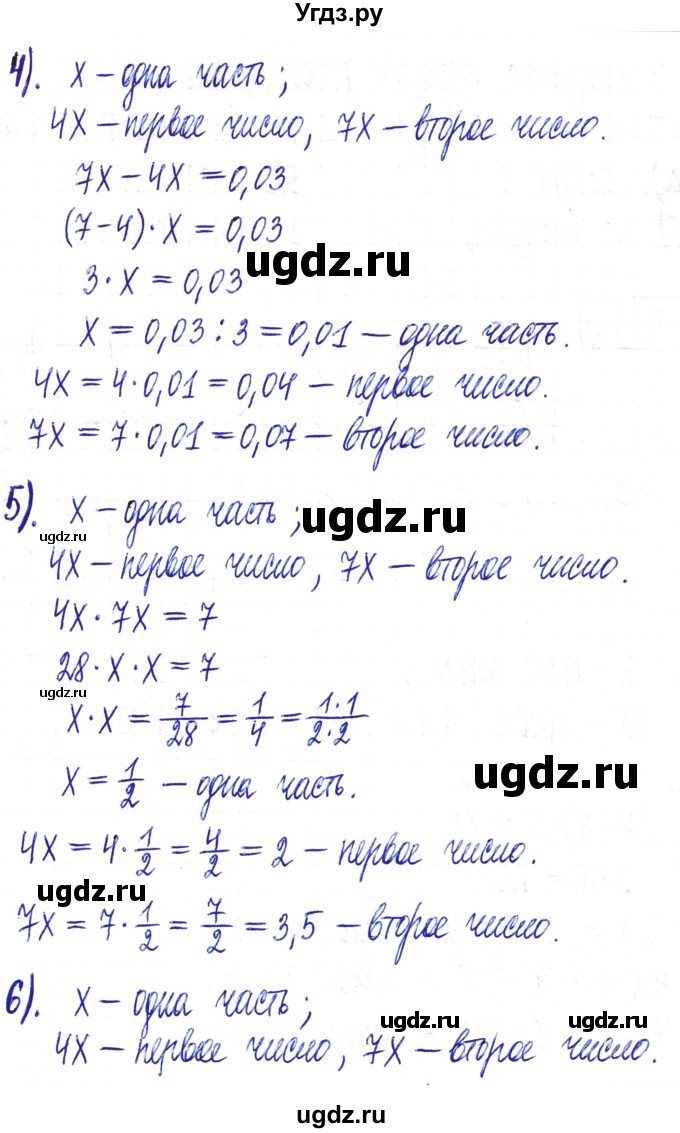 Угдз.ру
4). х – одна часть ;
4х – первое число, 7х – второе число.
7х – 4х = 0,03
(7-4)· х = 0,03
ugdz.ru
3·х = 0,03
х = 0,03 : 3 = 0,01 – одна часть.
4х = 4·0,01 = 0,04 – первое число.
7х = 7·0,01 = 0,07 – второе число.
5). х – одна часть ;
ugdz.ru
ugdz.ru
4х – первое число , 7х – второе число.
4х·7х = 7
28·х·х = 7
ugdz.ru
х·х = 7/28 = 1/4 = 1·1/2·2
ugdz.ru
х = 1/2 – одна часть.
4х = 4·1/2 = 4/2 = 2 – первое число.
ugdz.ru
7х = 7·1/2 = 7/2 = 3,5 – второе число.
6). х – одна часть ;
ugdz.ru ugdz.ru
4х – первое число , 7х – второе число.
ugdz.ru